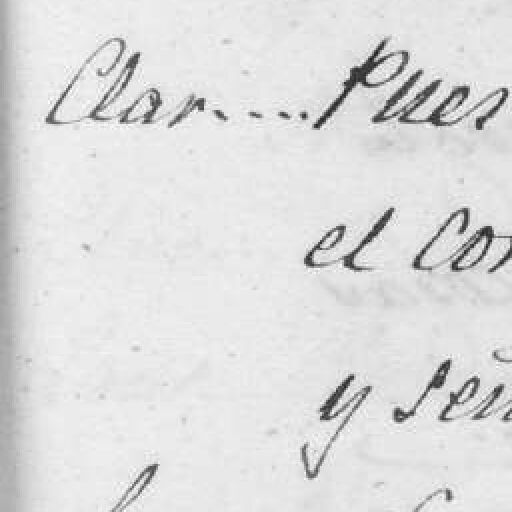 Clar.... Pues
el con
y señ